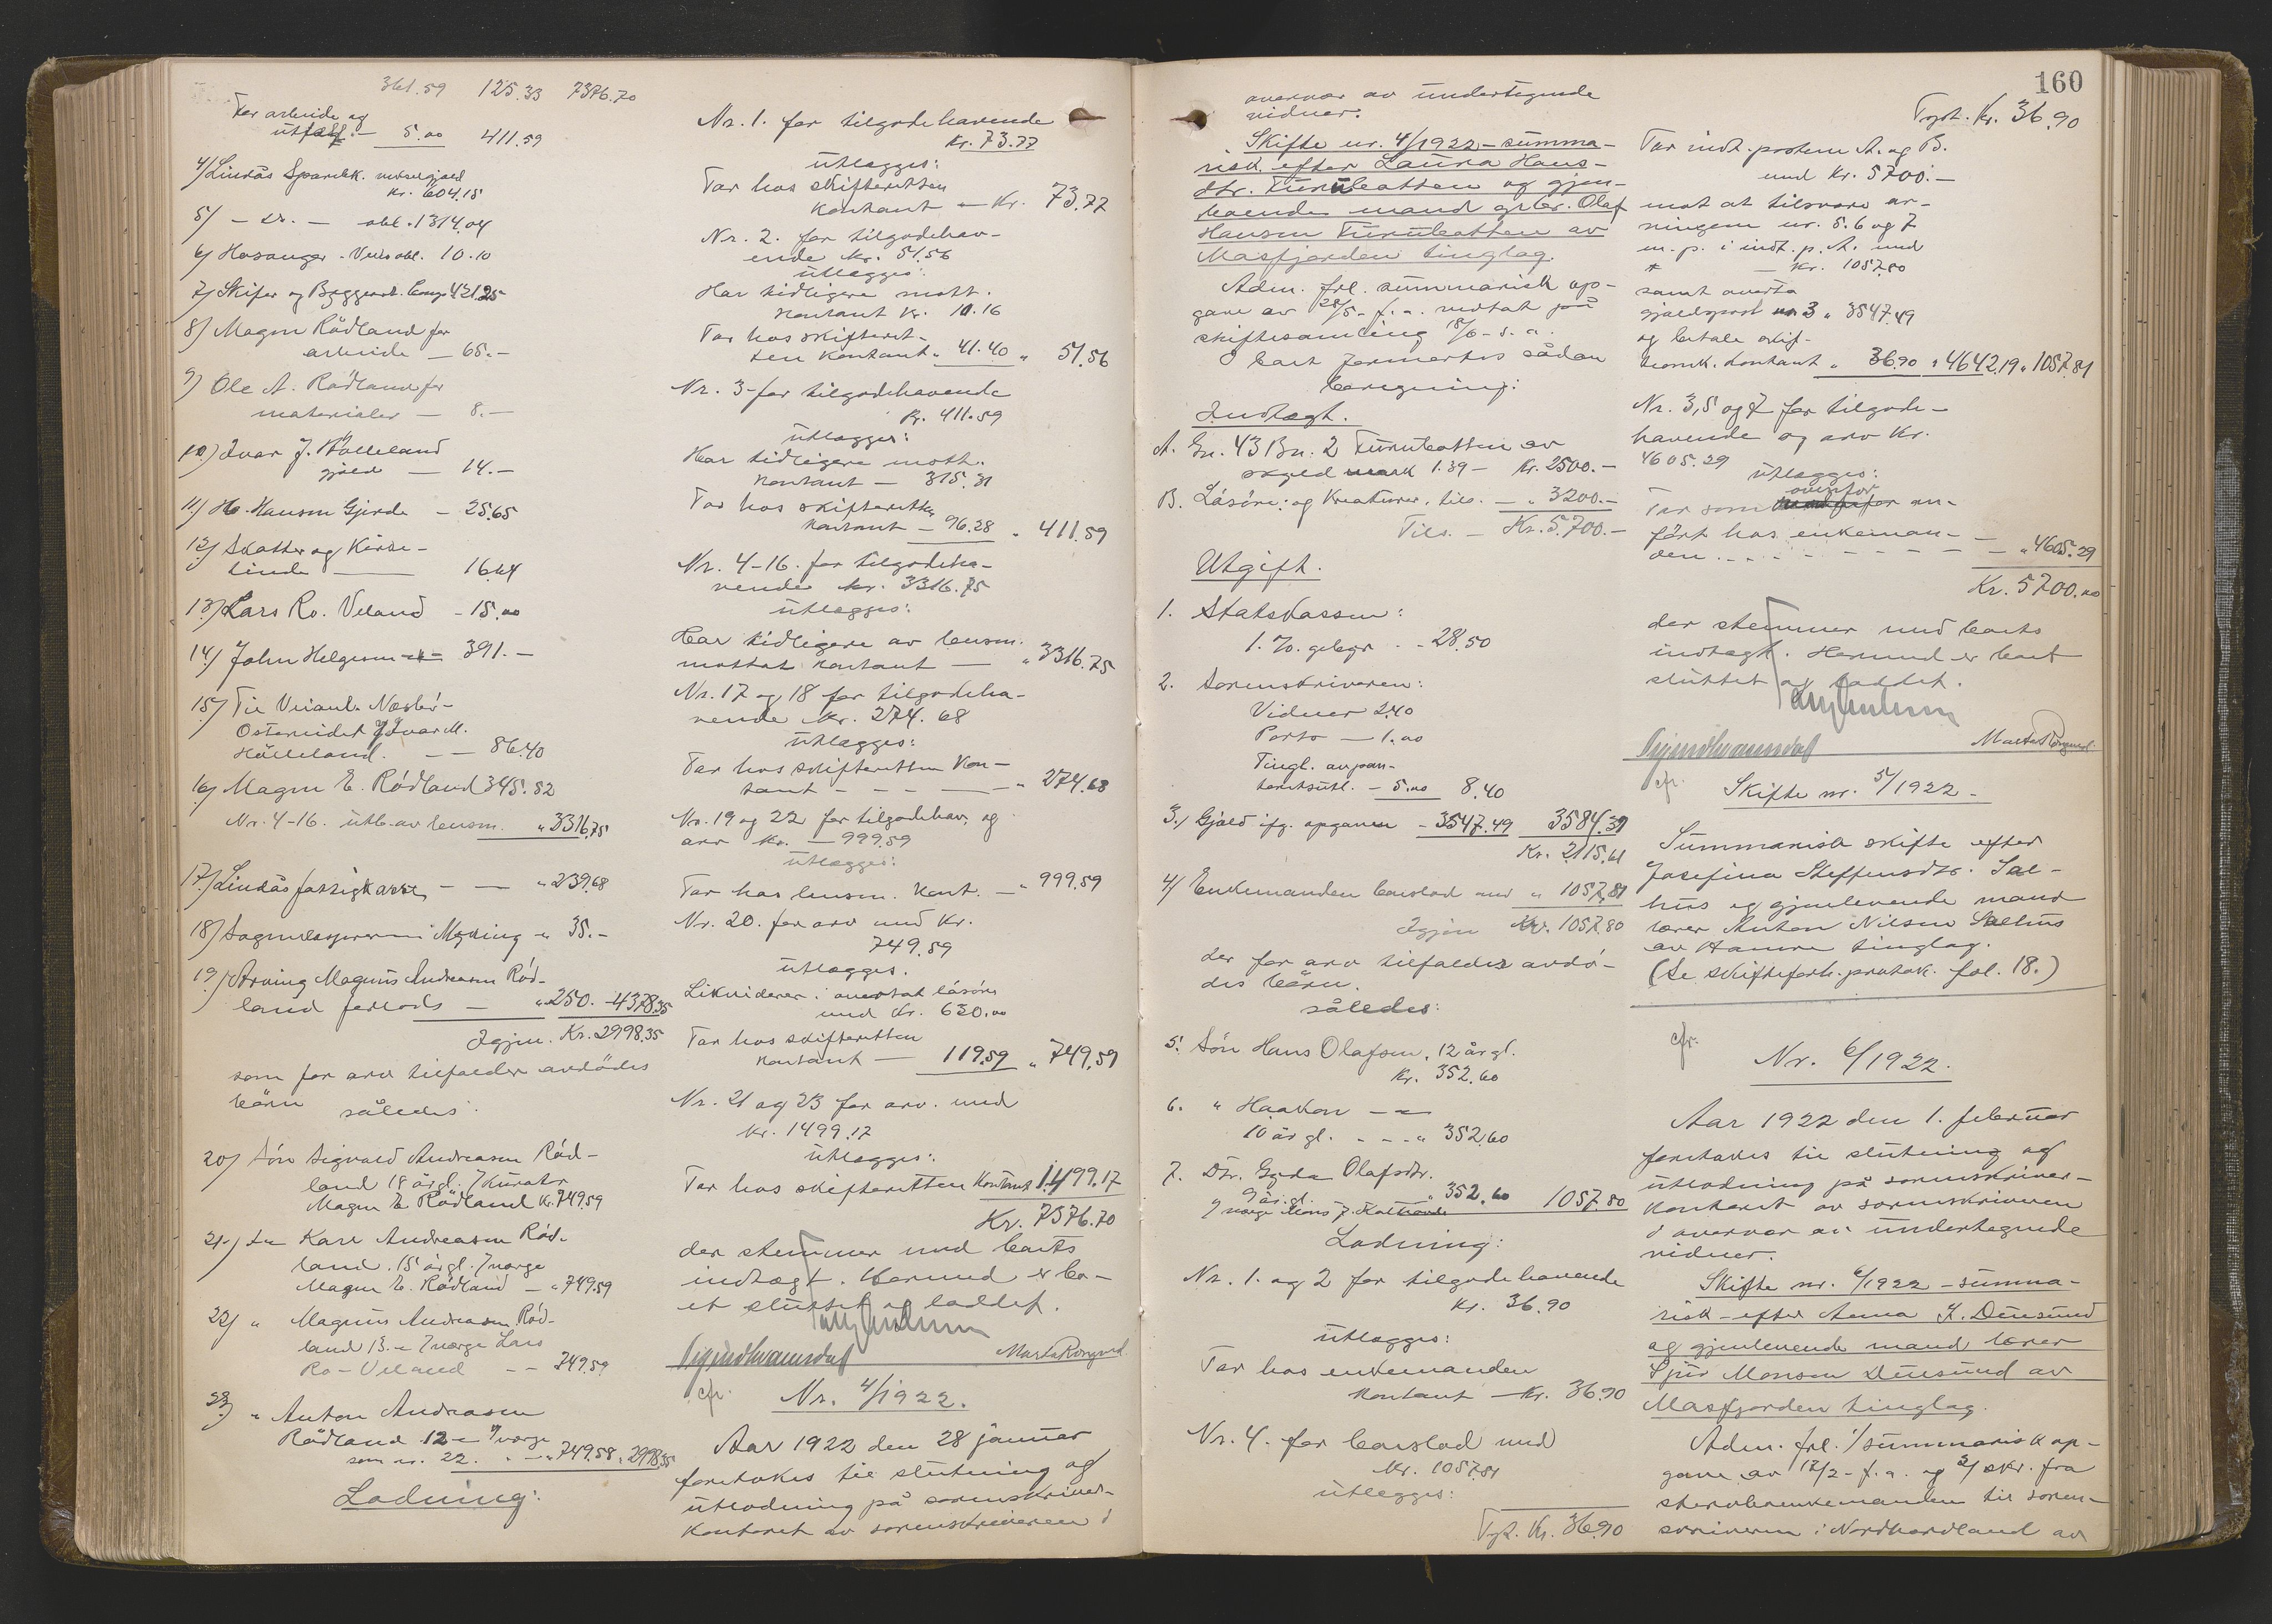 361.59 125.33 7376.70
For arbeide og
utlæg. — 5.00 411.59
4/ Lindås Sparebk. vekselgjæld
Kr. 604.15
5/ — do. — obl. 1314.04
6/ Hosanger - obl. 10.10
7/ Skifer og Byggevk. Comp. 421.25
8/ Magne Rödland for
arbeide — 65.—
9/ Ole A. Rödland for
materialer — 8.—
10/ Ivar J. Hölleland
gjæld — 14.—
11/ H. Hansen Gjerde — 25.65
12/ Skatter og Kirke-
tiende — 16.64
13/ Lars Ro. Veland — 15.00
14/ John Helgesen — 391.—
15/ Til Veianl. Nesbö-
Ostereidet v/ Ivar M.
Hölleland. — — 86.40
16/ Magne E. Rödland 345.52
Nr. 4-16. utb. av lensm. " 3316.75
17/ Lindås fattigkasse — — " 239.68
18/ Sogneprest Myking " 35.—
19/ Arving Magnus Andreasen Röd-
land forlods — " 250.— 4378.35
Igjen. Kr. 2998.35
som for arv tilfalder avdödes
börn således:
20/ Sön Sigvald Andreasen Röd-
land 18 år gl. / Kurator
Magne E. Rödland Kr. 749.59
21/ do Karl Andreasen Röd-
land. 15 år gl. / verge
Magne E. Rödland — " 749.59
22/ " Magnus Andreasen Röd-
land 13 — / verge Lars
Ro. Veland — — 749.59
23/ " Anton Andreasen
Rödland 12 — / verge
som nr. 22. " — " 749.58 " 2998.35
Lodning:
Nr. 1. for tilgodehavende
Kr. 73.77
utlægges:
Tar hos skifteretten
kontant — Kr. 73.77
Nr. 2. for tilgodehav-
ende Kr. 51.56
utlægges:
Har tidligere mott.
kontant Kr. 10.16
Tar hos skifteret-
ten kontant " 41.40 " 51.56
Nr. 3 for tilgodehavende
Kr. 411.59
utlægges:
Har tidligere mott.
kontant — 315.31
Tar hos skifteretten
kontant — 96.28 " 411.59
Nr. 4-16. for tilgodeha-
vende kr. 3316.75
utlægges:
Har tidligere av lensm.
mottat kontant — " 3316.75
Nr. 17 og 18 for tilgodeha-
vende Kr. 274.68
utlægges:
Tar hos skifteretten kon-
tant — — — — " 274.68
Nr. 19 og 22 for tilgodehav. og
arv Kr. — 999.59
utlægges:
Tar hos lensm. kont. — " 999.59
Nr. 20. for arv med Kr.
749.59
utlægges.
Likviderer i overtat lösöre
med Kr. 630.00
Tar hos skifteretten
kontant — 119.59 " 749.59
Nr. 21 og 23 for arv. med
Kr. 1499.17
utlægges:
Tar hos skifteretten kontant 1499.17
Kr. 7376.70
der stemmer med boets
indtægt. Hermed er bo-
et sluttet og loddet.
cfr. Nr. 4/1922.
Aar 1922 den 28 januar
foretokes til slutning og
utlodning på sorenskriver-
kontoret av sorenskriveren i
160
overvær av undertegnede
vidner:
Skifte nr. 4/1922 – summa-
risk efter Laura Hans-
dtr. Furubotten og gjen-
levende mand grbr. Olaf
Hansen Furubotten av
Masfjorden tinglag.
Adm. frl. summarisk op-
gave av 28/5 – f.a. vedtat på
skiftesamling 18/6 – s.a.
I boet formertes sådan
beregning:
Indtægt.
A. Gn. 43 Bn. 2 Furubotten av
skyld mark 1.39 — Kr. 2500.—
B. Lösöre og kreaturer. tils. — " 3200.—
Tils. — Kr. 5.700.—
Utgift.
1. Statskassen:
1. % gebyr . . 28.50
2. Sorenskriveren:
Vidner 2.40
Porto — 1.00
Tingl. av pan-
teretsutl. — 5.00 8.40
3/ Gjæld ifg. opgaven — 3547.49 3584.39
Kr. 2115.61
4/ Enkemanden boeslod med " 1057.81
Igjen Kr. 1057.80
der for arv tilfalder avdö-
des börn.
således:
5. Sön Hans Olafsen, 12 år gl.
Kr. 352.60
6. " Haakon — "
10 år gl. . — — " 352.60
7. Dtr. Gyda Olafsdtr.
9 år gl. " 352.60 1057.80
Lodning:
Nr. 1. og 2 for tilgodehavende
Kr. 36.90
utlægges:
Tar hos enkemanden
kontant — Kr. 36.90
Nr. 4. for boeslod med
Kr. 1057.81
utlægges:
Trpt. Kr. 36.90
Trpt. Kr. 36.90
Tar indt. postene A. og B.
med Kr. 5700.—
mot at tilsvare ar-
vingene nr. 5. 6 og 7
m. p. i indt. p. A. med
— Kr. 1057.80
samt overta
gjældspost nr. 3 " 3547.49
og betale skif-
teomk. kontant " 36.90 " 4642.19 " 1057.81
Nr. 3, 5 og 7 for tilgode-
havende og arv Kr.
4605.29
utlægges:
ovenfor
Tar som an-
fört hos enkeman-
den . . . — — — — — " 4605.29
Kr. 5700.00
der stemmer med boets
indtægt. Hermed er boet
sluttet og loddet.
cfr. Skifte nr. 5/1922 –
Summarisk skifte efter
Josefina Steffensdtr. Sæl-
hus og gjenlevende mand
lærer Anton Nilsen Sælhus
av Hamre tinglag.
(Se skifteforh. protok. fol. 18.)
cfr.
Nr. 6/1922.
Aar 1922 den 1. februar
foretokes til slutning og
utlodning på sorenskriver-
kontoret av sorenskriveren
i overvær av undertegnede
vidner.
Skifte nr. 6/1922 – summa-
risk – efter Anna K. Duesund
og gjenlevende mand lærer
Sjur Monsen Duesund av
Masfjorden tinglag.
Adm. frl. 1/ summarisk op-
gave av 12/2 – f.a. og 2/ skr. fra
stervboenkemanden til soren-
skriveren i Nordhordland av